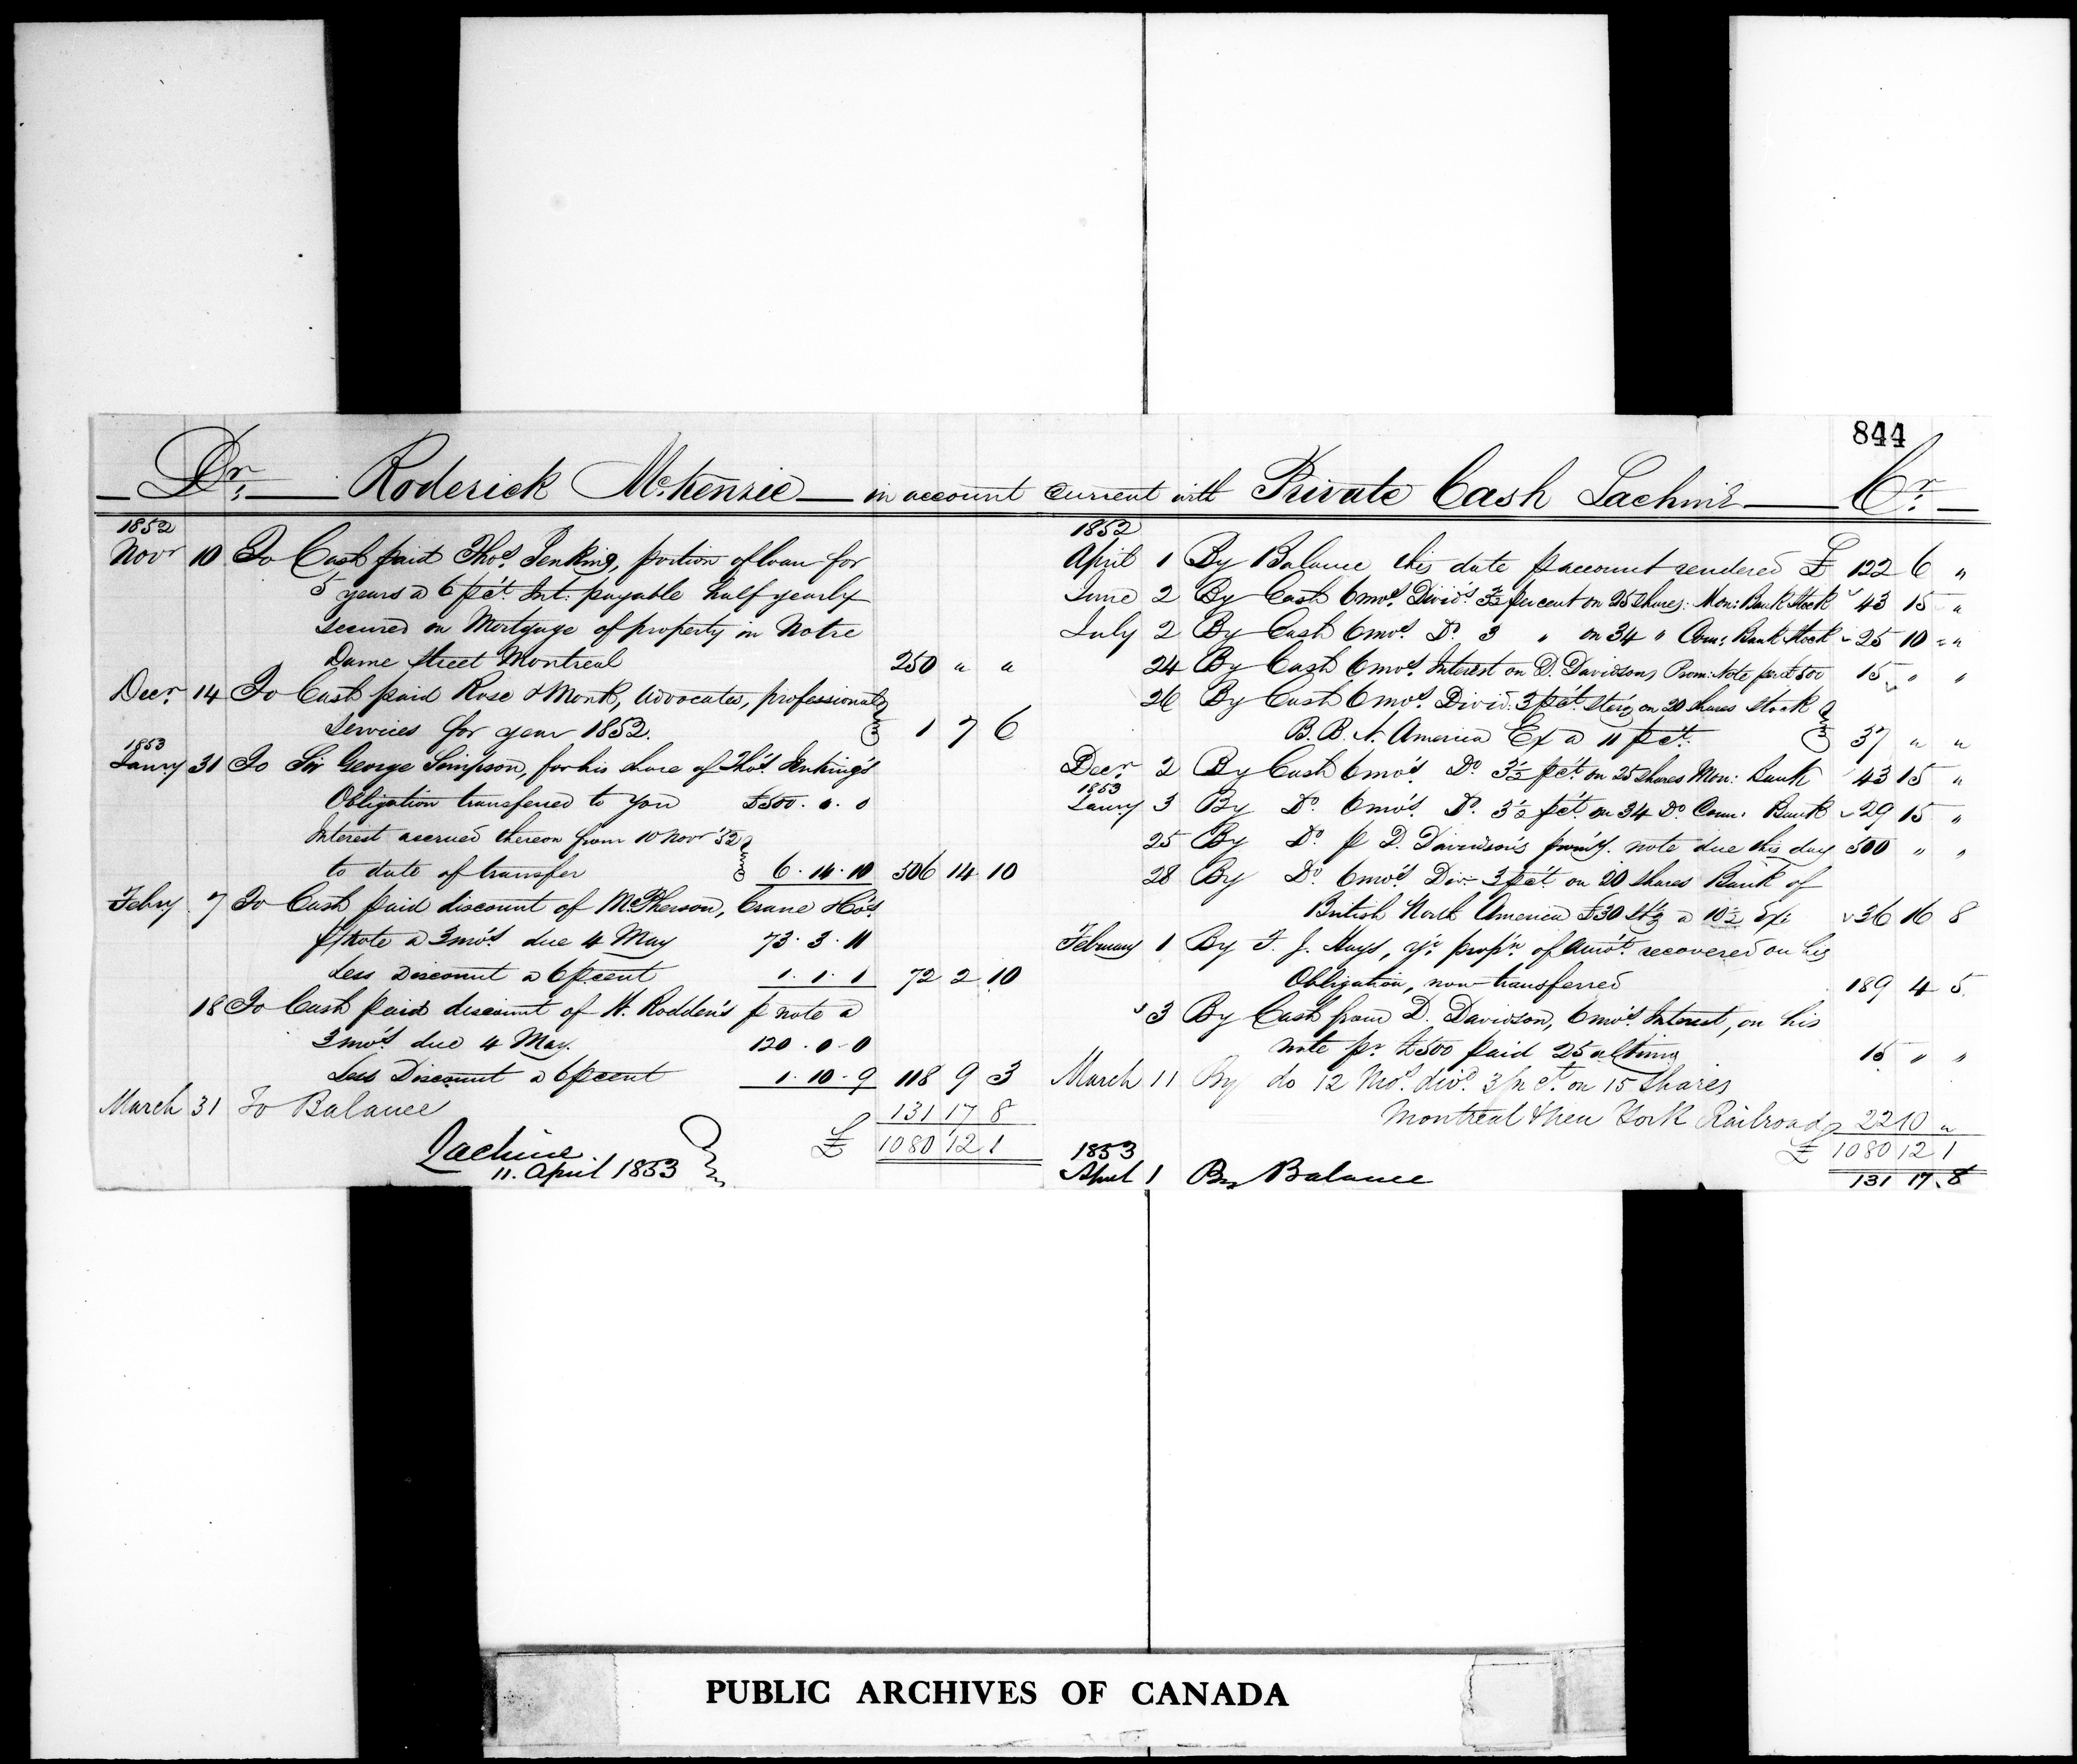 844
Dr. Roderick McKenzie in account current with Private Cash Lachine Cr.
1852
Novr 10 To Cash paid Thos. Jenking, portion of loan for
5 years a 6 p ct. Int: payable half yearly
secured on Mortgage of property in Notre
Dame Street Montreal 250 " "
Decr. 14 To Cash paid Rose & Monk, Advocates, professional
services for year 1852. 1 7 6
1853
Janry 31 To Sir George Simpson, for his share of Thos. Jenking's
Obligation transferred to you £500. 0. 0
Interest accrued thereon from 10 Novr '52
to date of transfer 6. 14. 10 506 14 10
Febry. 7 To Cash paid discount of McPherson, Crane & Co's
p/note a 3 mo's due 4 May 73. 3. 11
Less Discount a 6 p cent 1. 1. 1 72 2 10
18 To Cash paid discount of H. Rodden's p note a
3 mo's. due 4 May. 120. 0-0
Less Discount a 6 p cent 1. 10-9 118 9 3
March 31 To Balance 131 17 8
£ 1080 12 1
Lachine
11. April 1853
1852
April 1 By Balance this date p account rendered £ 122 6 "
June 2 By Cash 6 mos. Divid's. 3½ per cent on 25 shares: Mon: Bank Stock 43 15 "
July 2 By Cash 6 mos. Do. 3 " on 34 " Com: Bank Stock 25 10 "
24 By Cash 6 mos. Interest on D. Davidsons Prom: Note for £500 15 " "
26 By Cash 6 mos. Divid. 3 p ct. sterg on 20 shares Stock
B. B. N. America Ex a 11 p ct. 37 " "
Decr. 2 By Cash 6 mo's. Do. 3½ p ct. on 25 shares Mon: Bank 43 15 "
1853
Janry 3 By Do. 6 mo's. Do. 3½ p ct. on 34 Do Com: Bank 29 15 "
25 By Do. p D. Davidson's prom'y. note due this day 500 " "
28 By Do. 6 mo's. Div: 3 p ct. on 20 shares Bank of
British North America £30 Stg a 10½ Ex: 36 16 8
February 1 By F. J. Hays, yr. prop'n of Amo't recovered on his
Obligation, now transferred 189 4 5
3 By Cash from D. Davidson, 6 mo's. Interest, on his
note pr. £500 paid 25 ultimo 15 " "
March 11 By do 12 Mos. divd. 3 p ct. on 15 Shares
Montreal & New York Railroad 22 10 "
£ 1080 12 1
1853
April 1 By Balance 131 17. 8
PUBLIC ARCHIVES OF CANADA